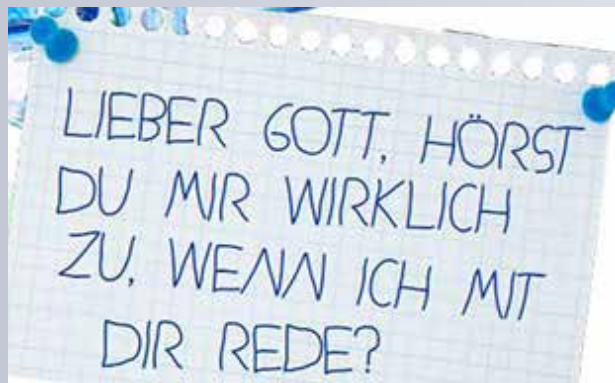 LIEBER GOTT, HÖRST
DU MIR WIRKLICH
ZU, WENN ICH MIT
DIR REDE?